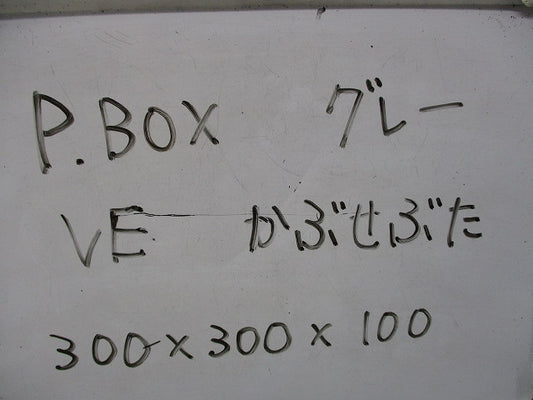 P.BOX グレー
VE かぶせぶた
300×300×100